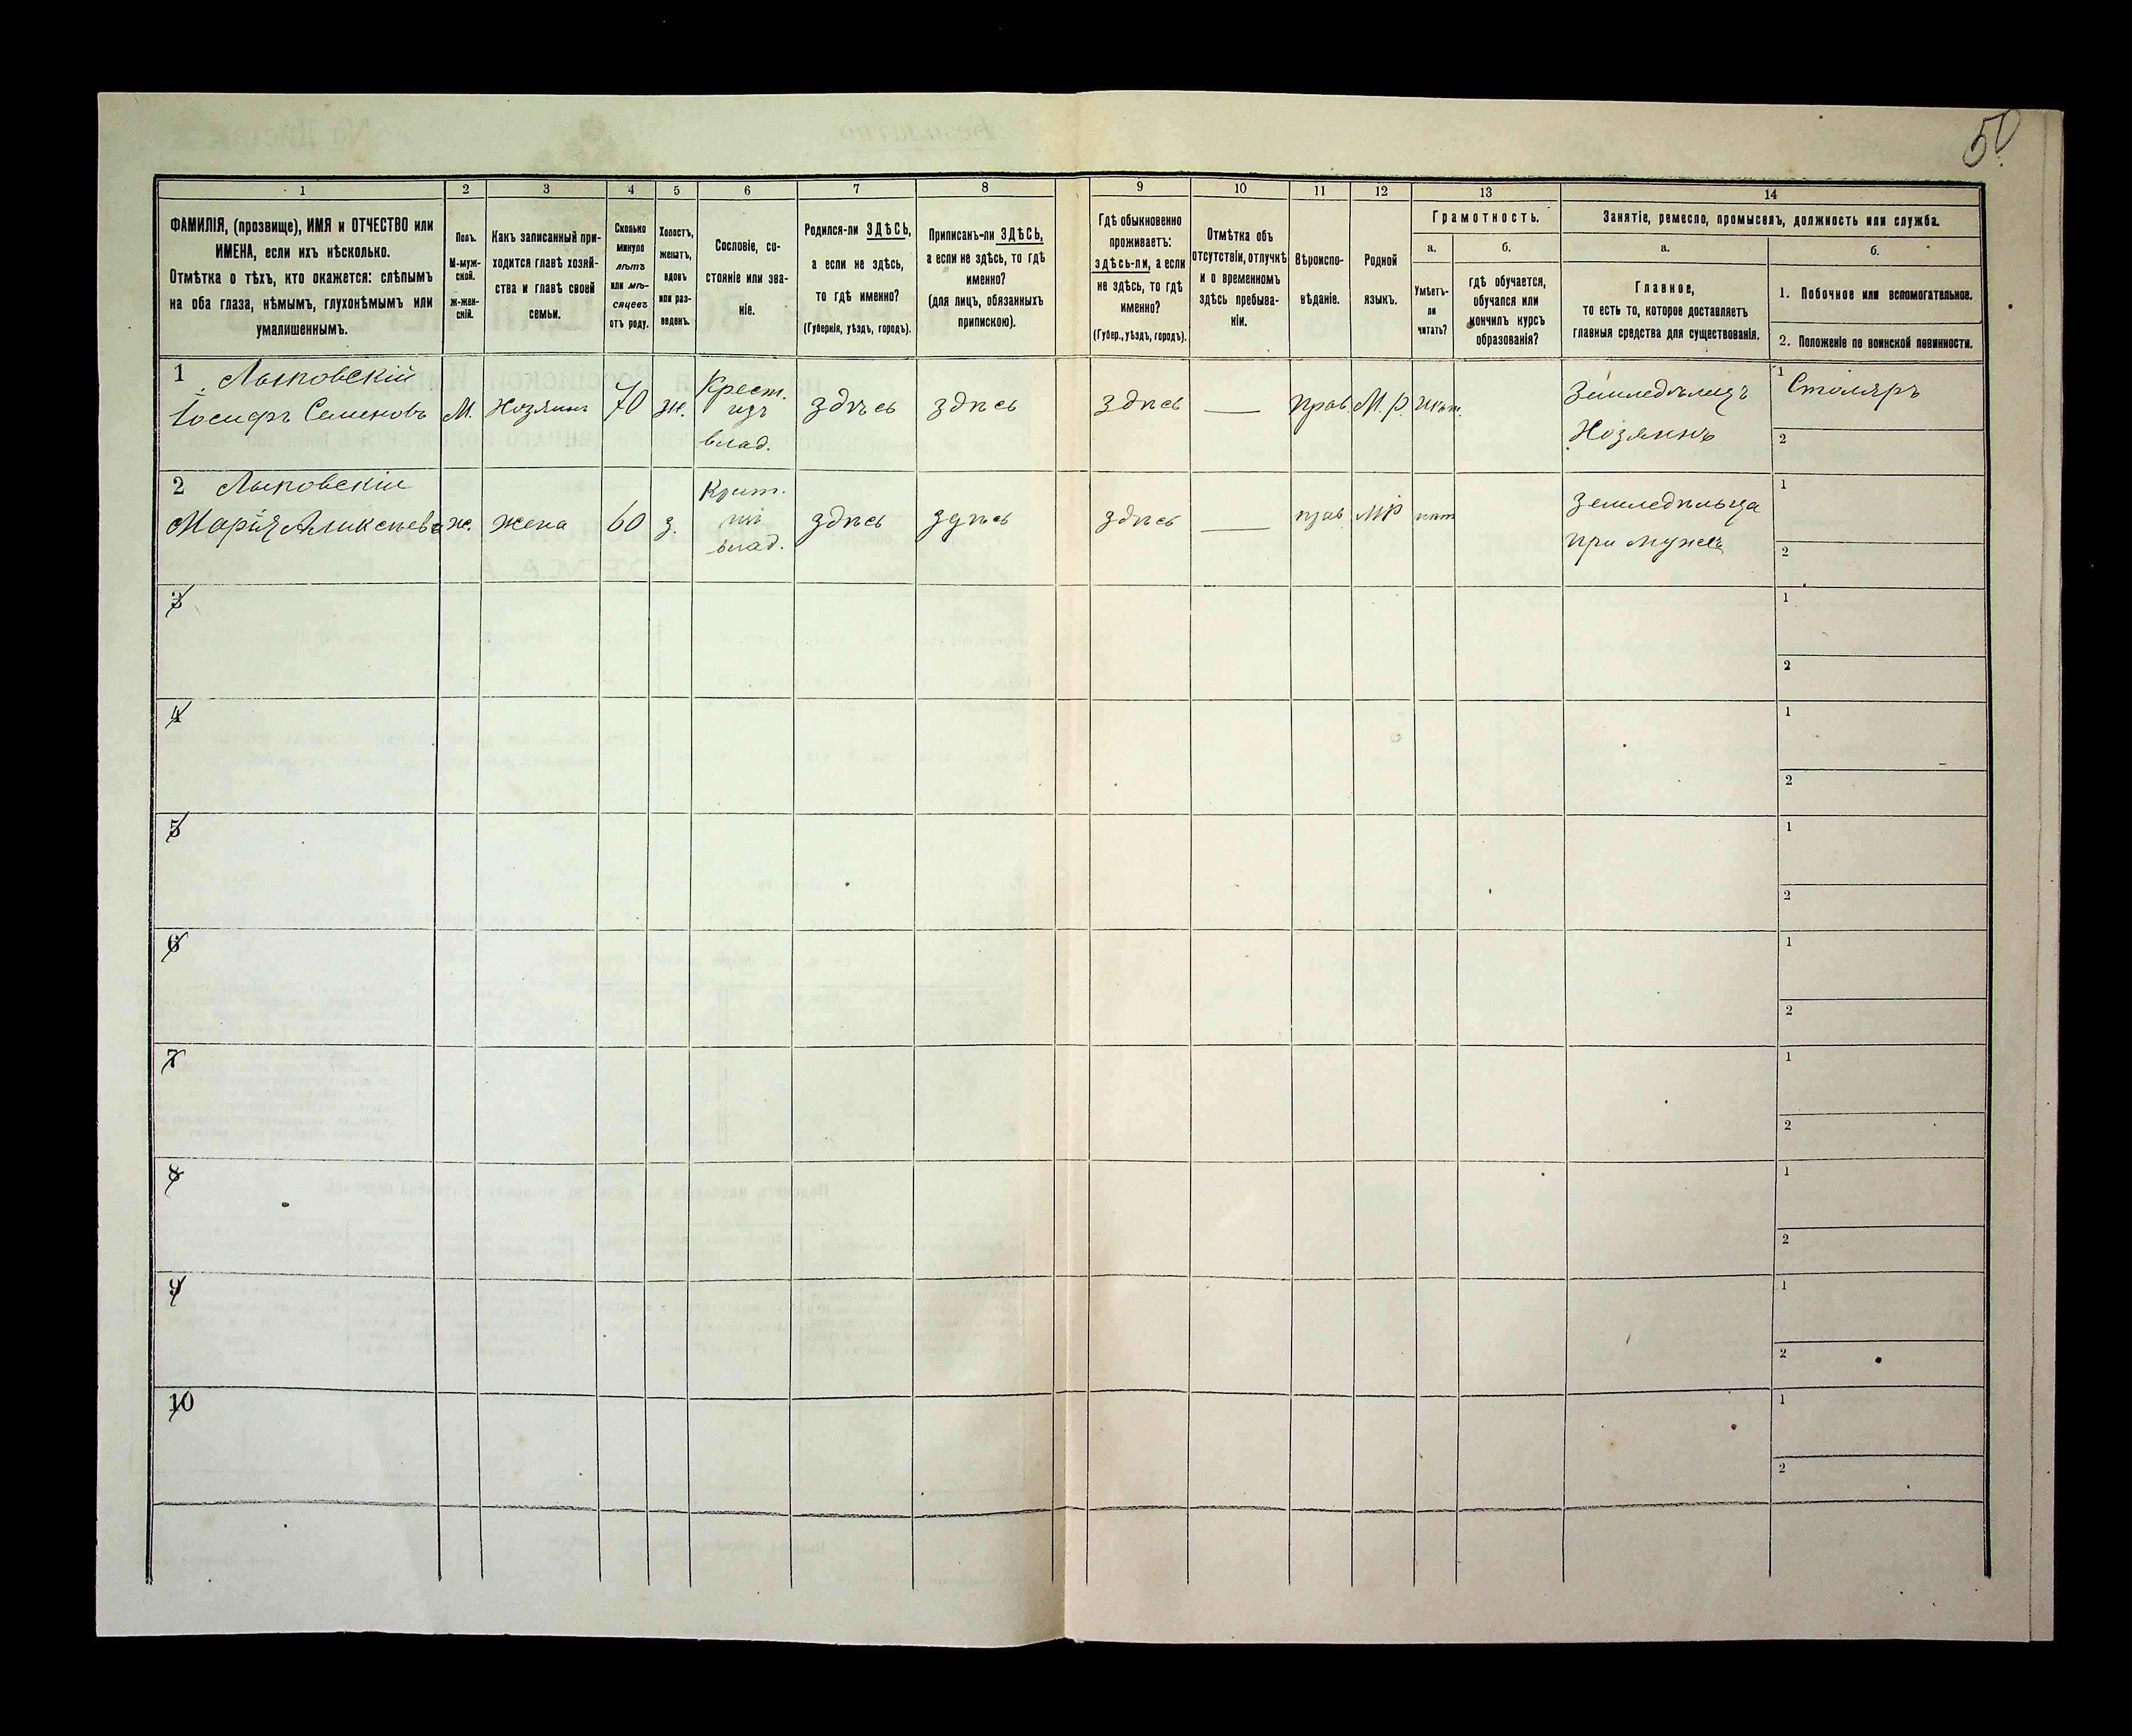 50
1
2
3
4
5
6
7
8
9
10
11
12
13
14
ФАМИЛІЯ, (прозвище), ИМЯ и ОТЧЕСТВО или
ИМЕНА, если ихъ нѣсколько.
Отмѣтка о тѣхъ, кто окажется: слѣпымъ
на оба глаза, нѣмымъ, глухонѣмымъ или
умалишеннымъ.
Полъ.
М-муж-
ской.
ж-жен-
скій.
Какъ записанный при-
ходится главѣ хозяй-
ства и главѣ своей
семьи.
Сколько
минуло
лѣтъ
или мѣ-
сяцевъ
отъ роду.
Холостъ,
женатъ,
вдовъ
или раз-
веденъ.
Сословіе, со-
стояніе или зва-
ніе.
Родился-ли ЗДѢСЬ,
а если не здѣсь,
то гдѣ именно?
(Губернія, уѣздъ, городъ).
Приписанъ-ли ЗДѢСЬ,
а если не здѣсь, то гдѣ
именно?
(для лицъ, обязанныхъ
припискою).
Гдѣ обыкновенно
проживаетъ:
здѣсь-ли, а если
не здѣсь, то гдѣ
именно?
(Губер., уѣздъ, городъ).
Отмѣтка объ
отсутствіи, отлучкѣ
и о временномъ
здѣсь пребыва-
ніи.
Вѣроиспо-
вѣданіе.
Родной
языкъ.
Грамотность.
а.
Умѣетъ-
ли
читать?
б.
гдѣ обучается,
обучался или
кончилъ курсъ
образованія?
Занятіе, ремесло, промыселъ, должность или служба.
а.
Главное,
то есть то, которое доставляетъ
главныя средства для существованія.
б.
1. Побочное или вспомогательное.
2. Положеніе по воинской повинности.
1 Лыповскій
Іосифъ Семеновъ М. Хозяинъ 70 ж. Крест. изъ влад. здѣсь здѣсь здѣсь — Прав. М. р. нѣт. Земледѣлецъ 1 Столяръ
Хозяинъ 2
2 Лыповскіи
Марія Алексѣева ж. жена 60 з. Крест. изъ влад. здѣсь здѣсь здѣсь — прав МР нѣт Земледѣлица 1
При мужѣ 2
3 1
2
4 1
2
5 1
2
6 1
2
7 1
2
8 1
2
9 1
2
10 1
2